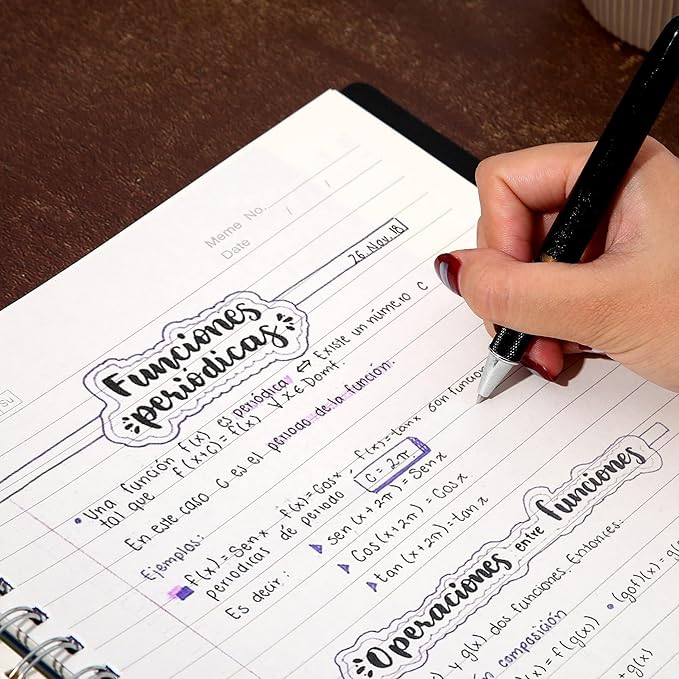 Meme No.
Date / /
26. Nov. 18
Funciones
periódicas
• Una función f(x) es periódica ⇔ Existe un número C
tal que f(x+C) = f(x) ∀ x ∈ Domf.
En este caso C es el periodo de la función.
Ejemplos:
f(x) = Sen x f(x) = Cos x ; f(x) = tan x son funcion
periodicas de periodo C = 2π.
Es decir: ▸ sen (x + 2π) = Sen x
▸ Cos (x + 2π) = Cos x
▸ tan (x + 2π) = tan x
Operaciones entre funciones
y g(x) dos funciones. Entonces
n composición
= f(g(x)) • (gof)(x) = g(f
Su